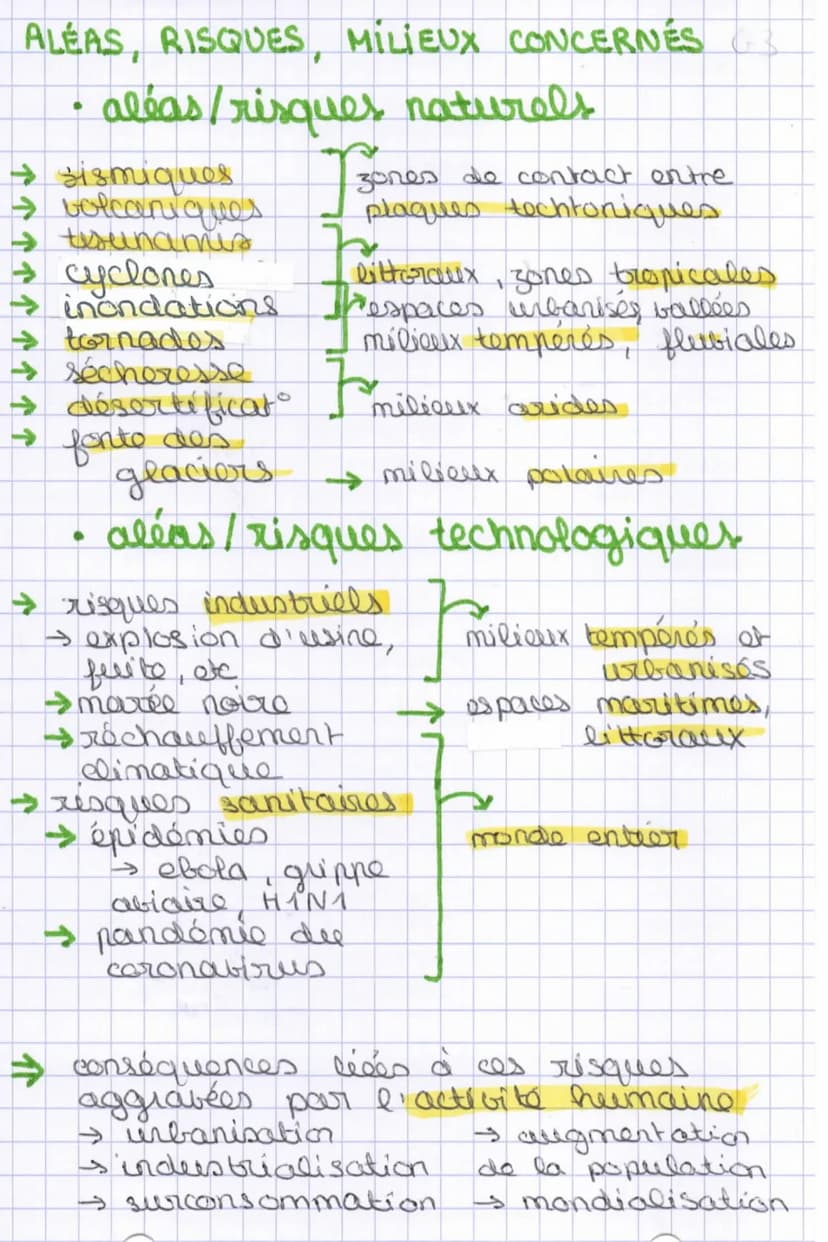 ALÉAS, RISQUES, MILIEUX CONCERNÉS G3
• aléas/risques naturels
→ sismiques
→ volcaniques
→ tsunamis
→ cyclones
→ inondations
→ tornades
→ sécheresse
→ désertificat°
→ fonte des
glaciers
zones de contact entre
plaques techtoniques
littoraux, zones tropicales
espaces urbanisés, vallées
milieux tempérés, fluviales
milieux arides
→ milieux polaires
• aléas/risques technologiques
→ risques industriels
→ explosion d'usine,
fuite, etc
→ marée noire
→ réchauffement
climatique
→ risques sanitaires
→ épidémies
→ ebola, grippe
aviaire, H1N1
→ pandémie du
coronavirus
milieux tempérés et
urbanisés
→ espaces maritimes,
littoraux
monde entier
→ conséquences liées à ces risques
aggravées par l'activité humaine
→ urbanisation
→ industrialisation
→ surconsommation
→ augmentation
de la population
→ mondialisation